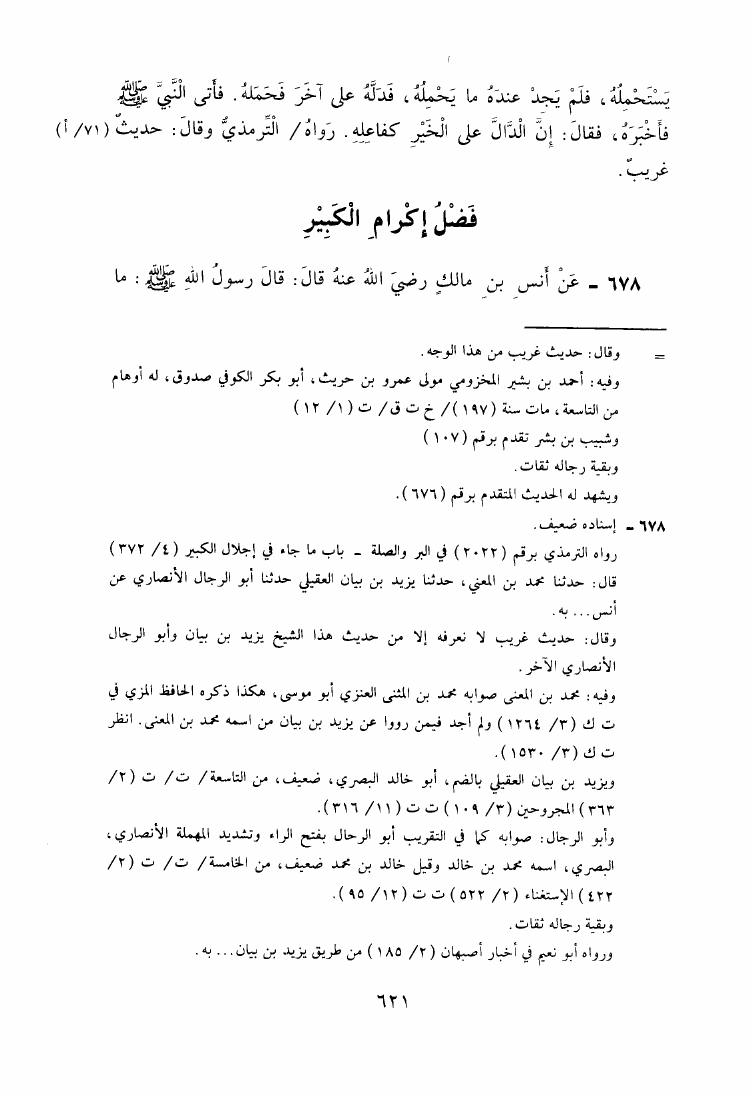 يَسْتَحْمِلُهُ، فَلَمْ يَجِدْ عندَهُ ما يَحْمِلُهُ، فَدَلَّهُ على آخَرَ فَحَمَلهُ. فأَتى النَّبيَّ ﷺ
فأَخْبَرَهُ، فقالَ: إِنَّ الْدَّالَّ على الْخَيْرِ كفاعلِهِ. رَواهُ/ الْتِّرمذيُّ وقالَ: حديثٌ (٧١/ أ)
غريبٌ.
فَضْلُ إِكْرامِ الْكَبِيْرِ
٦٧٨ ـ عَنْ أَنسِ بنِ مالكٍ رضيَ اللهُ عنهُ قالَ: قالَ رسولُ اللهِ ﷺ: ما
= وقال: حديث غريب من هذا الوجه.
وفيه: أحمد بن بشير المخزومي مولى عمرو بن حريث، أبو بكر الكوفي صدوق، له أوهام
من التاسعة، مات سنة (١٩٧)/ خ ت ق/ ت (١/ ١٢)
وشبيب بن بشر تقدم برقم (١٠٧)
وبقية رجاله ثقات.
ويشهد له الحديث المتقدم برقم (٦٧٦).
٦٧٨ ـ إسناده ضعيف.
رواه الترمذي برقم (٢٠٢٢) في البر والصلة ـ باب ما جاء في إجلال الكبير (٤/ ٣٧٢)
قال: حدثنا محمد بن المعنى، حدثنا يزيد بن بيان العقيلي حدثنا أبو الرجال الأنصاري عن
أنس... به.
وقال: حديث غريب لا نعرفه إلا من حديث هذا الشيخ يزيد بن بيان وأبو الرجال
الأنصاري الآخر.
وفيه: محمد بن المعنى صوابه محمد بن المثنى العنزي أبو موسى، هكذا ذكره الحافظ المزي في
ت ك (٣/ ١٢٦٤) ولم أجد فيمن رووا عن يزيد بن بيان من اسمه محمد بن المعنى. انظر
ت ك (٣/ ١٥٣٠).
ويزيد بن بيان العقيلي بالضم، أبو خالد البصري، ضعيف، من التاسعة/ ت/ ت (٢/
٣٦٣) المجروحين (٣/ ١٠٩) ت ت (١١/ ٣١٦).
وأبو الرجال: صوابه كما في التقريب أبو الرحال بفتح الراء وتشديد المهملة الأنصاري،
البصري، اسمه محمد بن خالد وقيل خالد بن محمد ضعيف، من الخامسة/ ت/ ت (٢/
٤٢٢) الإستغناء (٢/ ٥٢٢) ت ت (١٢/ ٩٥).
وبقية رجاله ثقات.
ورواه أبو نعيم في أخبار أصبهان (٢/ ١٨٥) من طريق يزيد بن بيان... به.
٦٢١